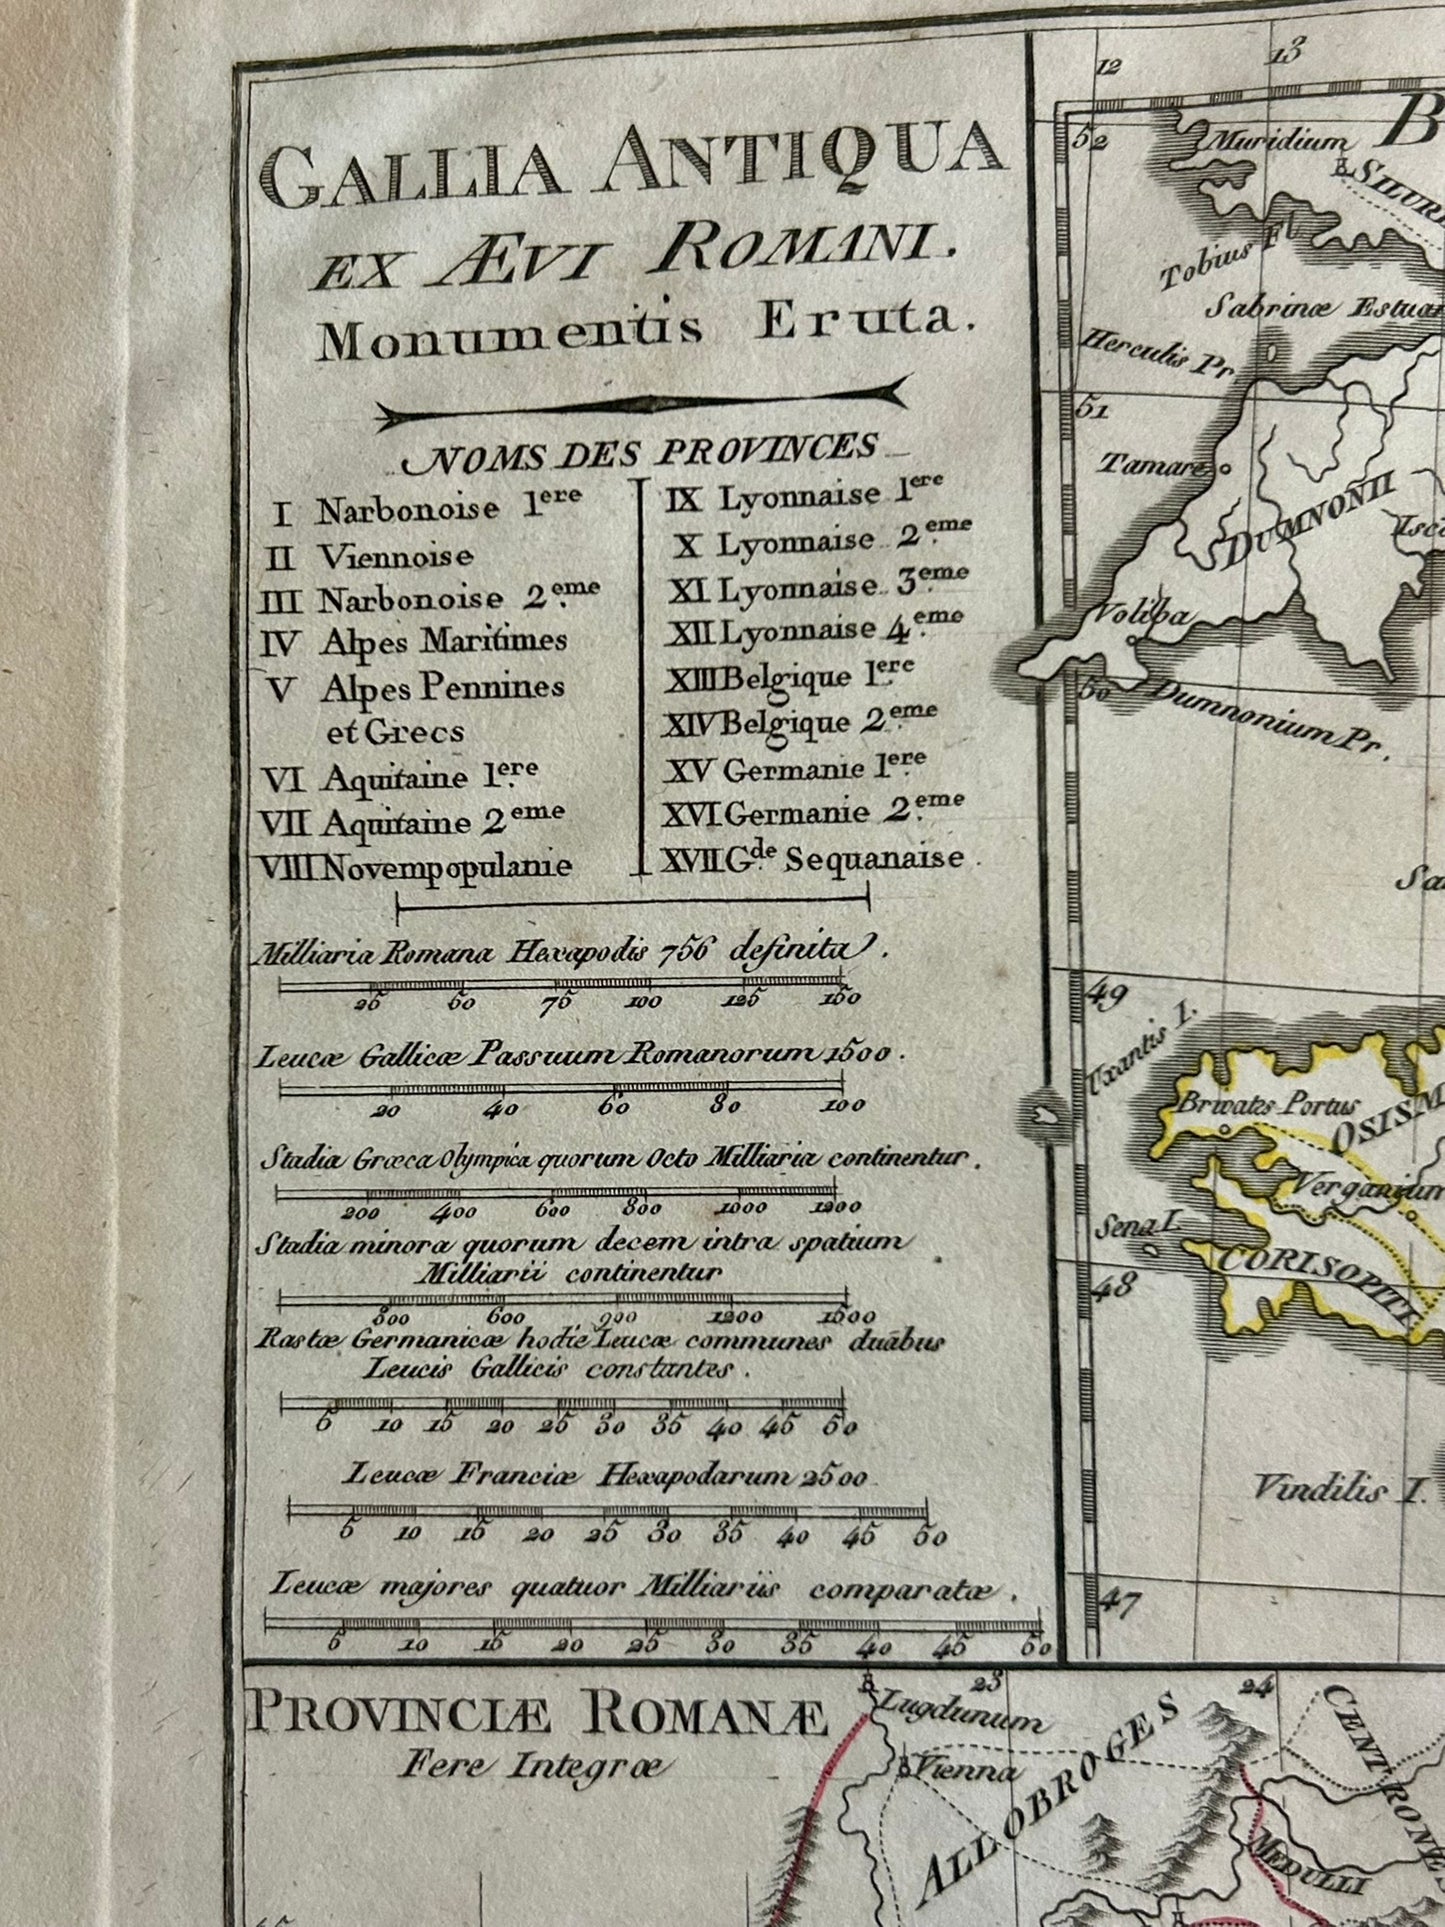 GALLIA ANTIQUA
EX ÆVI ROMANI.
Monumentis Eruta.
NOMS DES PROVINCES
I Narbonoise 1ere
II Viennoise
III Narbonoise 2.eme
IV Alpes Maritimes
V Alpes Pennines
et Grecs
VI Aquitaine 1.ere
VII Aquitaine 2eme
VIII Novempopulanie
IX Lyonnaise 1ere
X Lyonnaise 2.eme
XI Lyonnaise 3.eme
XII Lyonnaise 4.eme
XIII Belgique 1.ere
XIV Belgique 2.eme
XV Germanie 1.ere
XVI Germanie 2.eme
XVII G.de Sequanaise
Milliaria Romana Hexapodis 756 definita.
25 50 75 100 125 150
Leucæ Gallicæ Passuum Romanorum 1500.
20 40 60 80 100
Stadia Græca Olympica quorum Octo Milliaria continentur.
200 400 600 800 1000 1200
Stadia minora quorum decem intra spatium
Milliarii continentur
300 600 900 1200 1500
Rastæ Germanicæ hodie Leucæ communes duabus
Leucis Gallicis constantes.
5 10 15 20 25 30 35 40 45 50
Leucæ Franciæ Hexapodarum 2500
5 10 15 20 25 30 35 40 45 50
Leucæ majores quatuor Milliariis comparatæ.
5 10 15 20 25 30 35 40 45 50
PROVINCIÆ ROMANÆ
Fere Integræ
12 13
52
B
Muridium
SILUR
Tobius Fl
Sabrinæ Estuar
Herculis Pr
51
Tamare
DUMNONII
Isc
Voliba
50
Dumnonium Pr.
Sa
49
Uxantis I.
Brivates Portus
OSISM
Verganium
Sena I.
CORISOPITI
48
Vindilis I.
47
23 24
Lugdunum
Vienna
ALLOBROGES
CENTRONES
MEDULLI